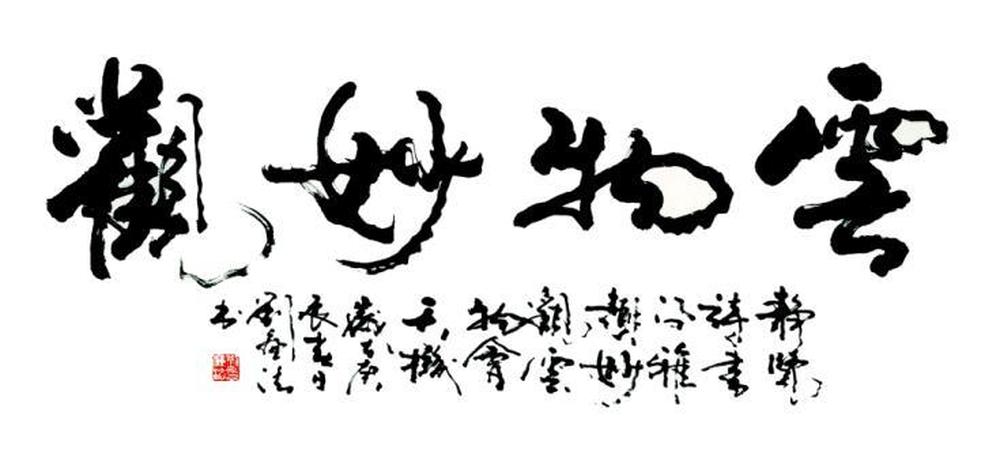 雲物妙觀
靜覽
詩書
得雅
趣妙
觀雲
物會
天機
歲庚
辰春
劉法
书